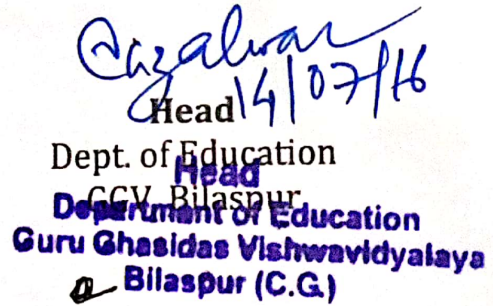 14/07/16
Head
Dept. of Education
Head
GGV, Bilaspur
Department of Education
Guru Ghasidas Vishwavidyalaya
Bilaspur (C.G.)